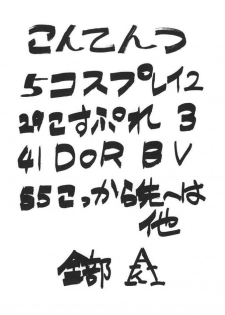 こんてんつ
5コスプレイ2
29こすぷれ 3
41 DOR B V
55こっから先へは
他
全部 A